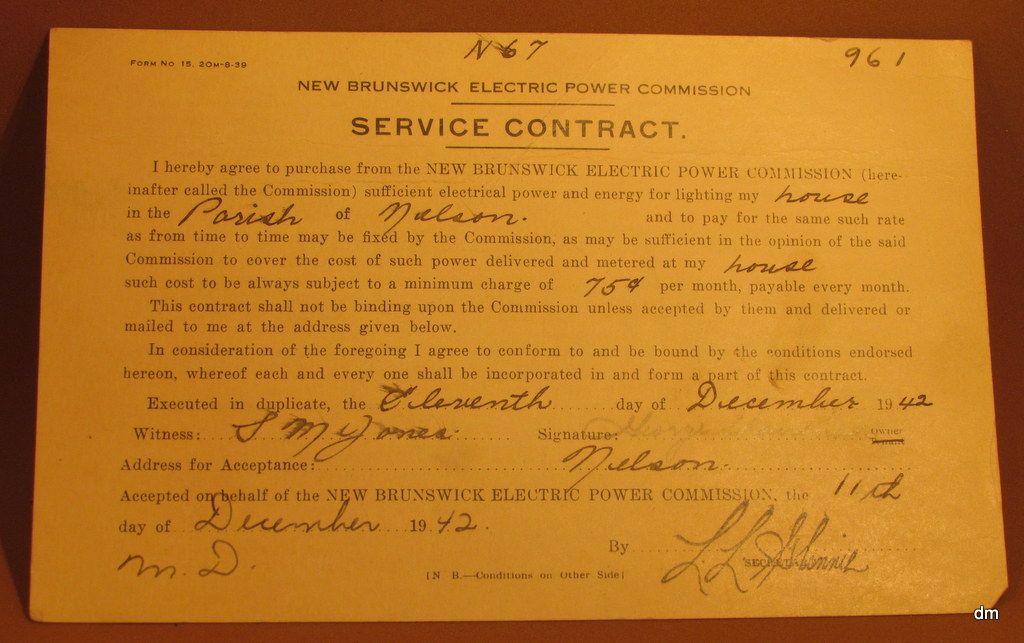 N 67
961
FORM NO 15. 20M-8-39
NEW BRUNSWICK ELECTRIC POWER COMMISSION
SERVICE CONTRACT.
I hereby agree to purchase from the NEW BRUNSWICK ELECTRIC POWER COMMISSION (here-
inafter called the Commission) sufficient electrical power and energy for lighting my house
in the Parish of Nelson. and to pay for the same such rate
as from time to time may be fixed by the Commission, as may be sufficient in the opinion of the said
Commission to cover the cost of such power delivered and metered at my house
such cost to be always subject to a minimum charge of 75¢ per month, payable every month.
This contract shall not be binding upon the Commission unless accepted by them and delivered or
mailed to me at the address given below.
In consideration of the foregoing I agree to conform to and be bound by the conditions endorsed
hereon, whereof each and every one shall be incorporated in and form a part of this contract.
Executed in duplicate, the Eleventh day of December 1942
Witness: Jones Signature: Owner
Address for Acceptance: Nelson.
Accepted on behalf of the NEW BRUNSWICK ELECTRIC POWER COMMISSION, the 11th
day of December 1942.
By
M. D.
[N B.—Conditions on Other Side]
dm